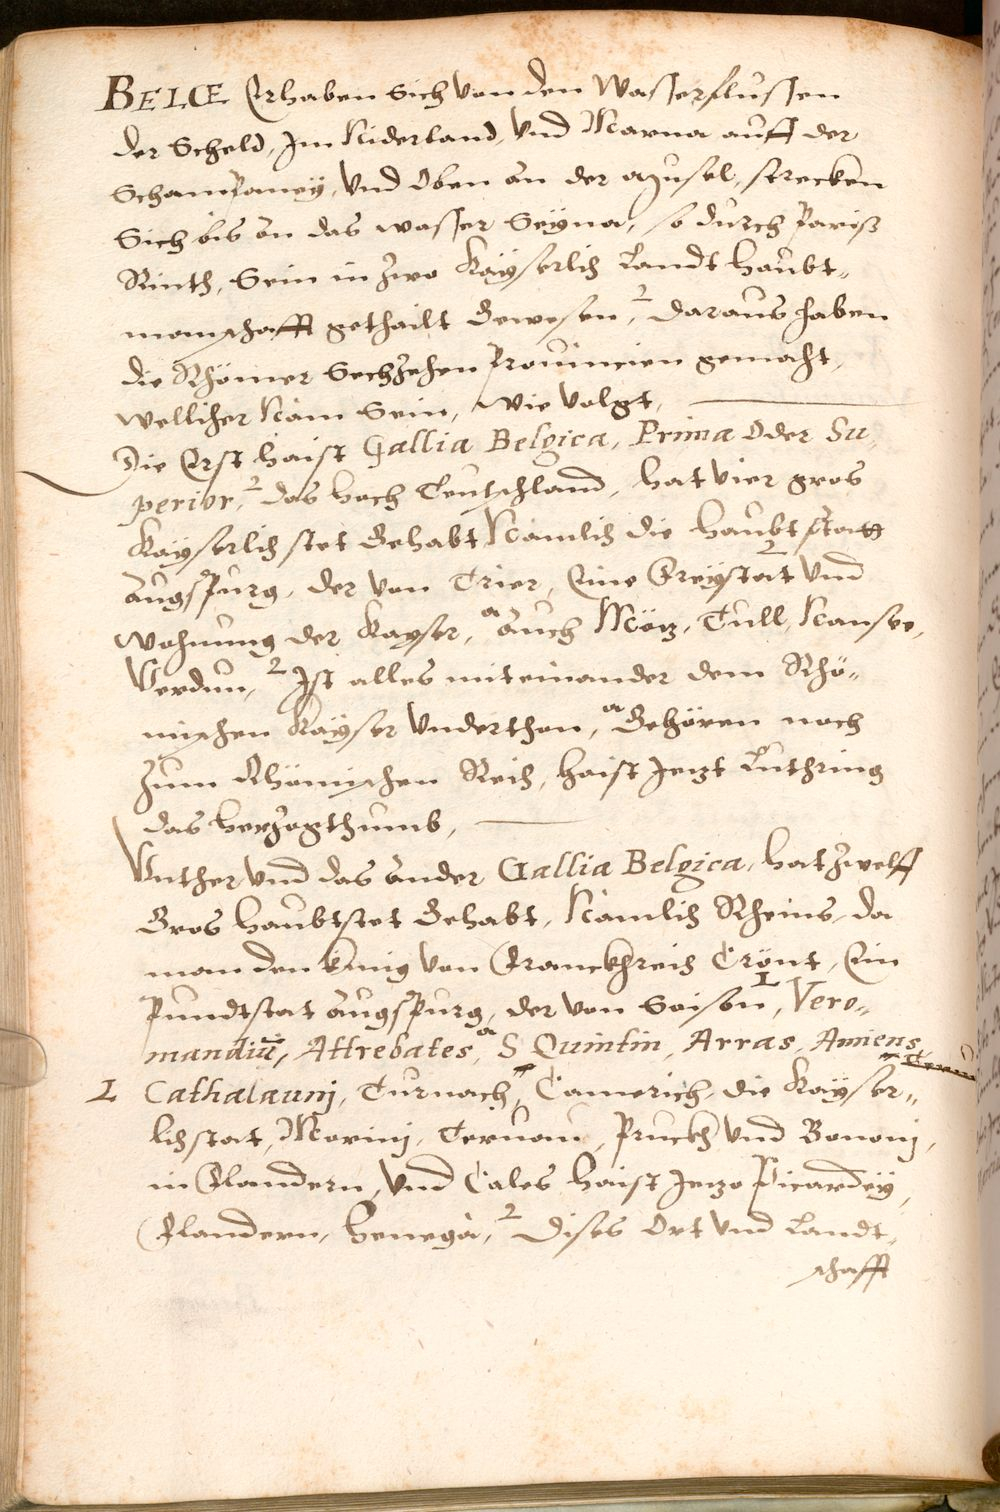 BELCÆ Erhaben Sich von den Wasserflussen
der Scheld, Im Niderland, Vnd Marna auff der
Schampaney, Vnd Oben an der Musel, strecken
Sich bis an das wasser Seyna, so durch Pariß
Rinth, Sein in zwo Kayserlich Landt haubt„
manschafft gethailt Gewesen, 2 daraus haben
die Rhömer Sechzehen Prouincien gemacht,
wellicher Nam Sein, wie volgt,
Die Erst haist Gallia Belgica, Prima Oder Su„
perior, 2 das hoch Teutschland, hat vier gros
Kayserlich stet Gehabt Namlich die haubt statt
augspurg, der von Trier, Eine Freystat 2 Vnd
wohnung der Kayser, a auch Mötz, Tull, Nansee,
Verdun, 2 Ist alles miteinander dem Rhö„
mischen Kayser Vnderthon, a Gehören noch
zum Rhömischen Reich, haist Jetzt Luthring
das herzogthumb,
Vnther Vnd das ander Gallia Belgica, hat zwelff
Gros haubtstet Gehabt, Namlich Rheins, da
man den König von Franckhreich Crönt, Ein
Pundtstat augspurg, der von Soison, I Vero„
mandiū, Attrebates, a S Quintin, Arras, Amiens
I Cathalaunj, Turnach, Camerich, die Kayser„
lich stat, Morinj, Teruan, Pruckh Vnd Bononj,
in Flandern, Vnd Cales haist Jetzo Picardey,
Flandern, Henegà, 2 dises Ort Vnd Landt„
schafft